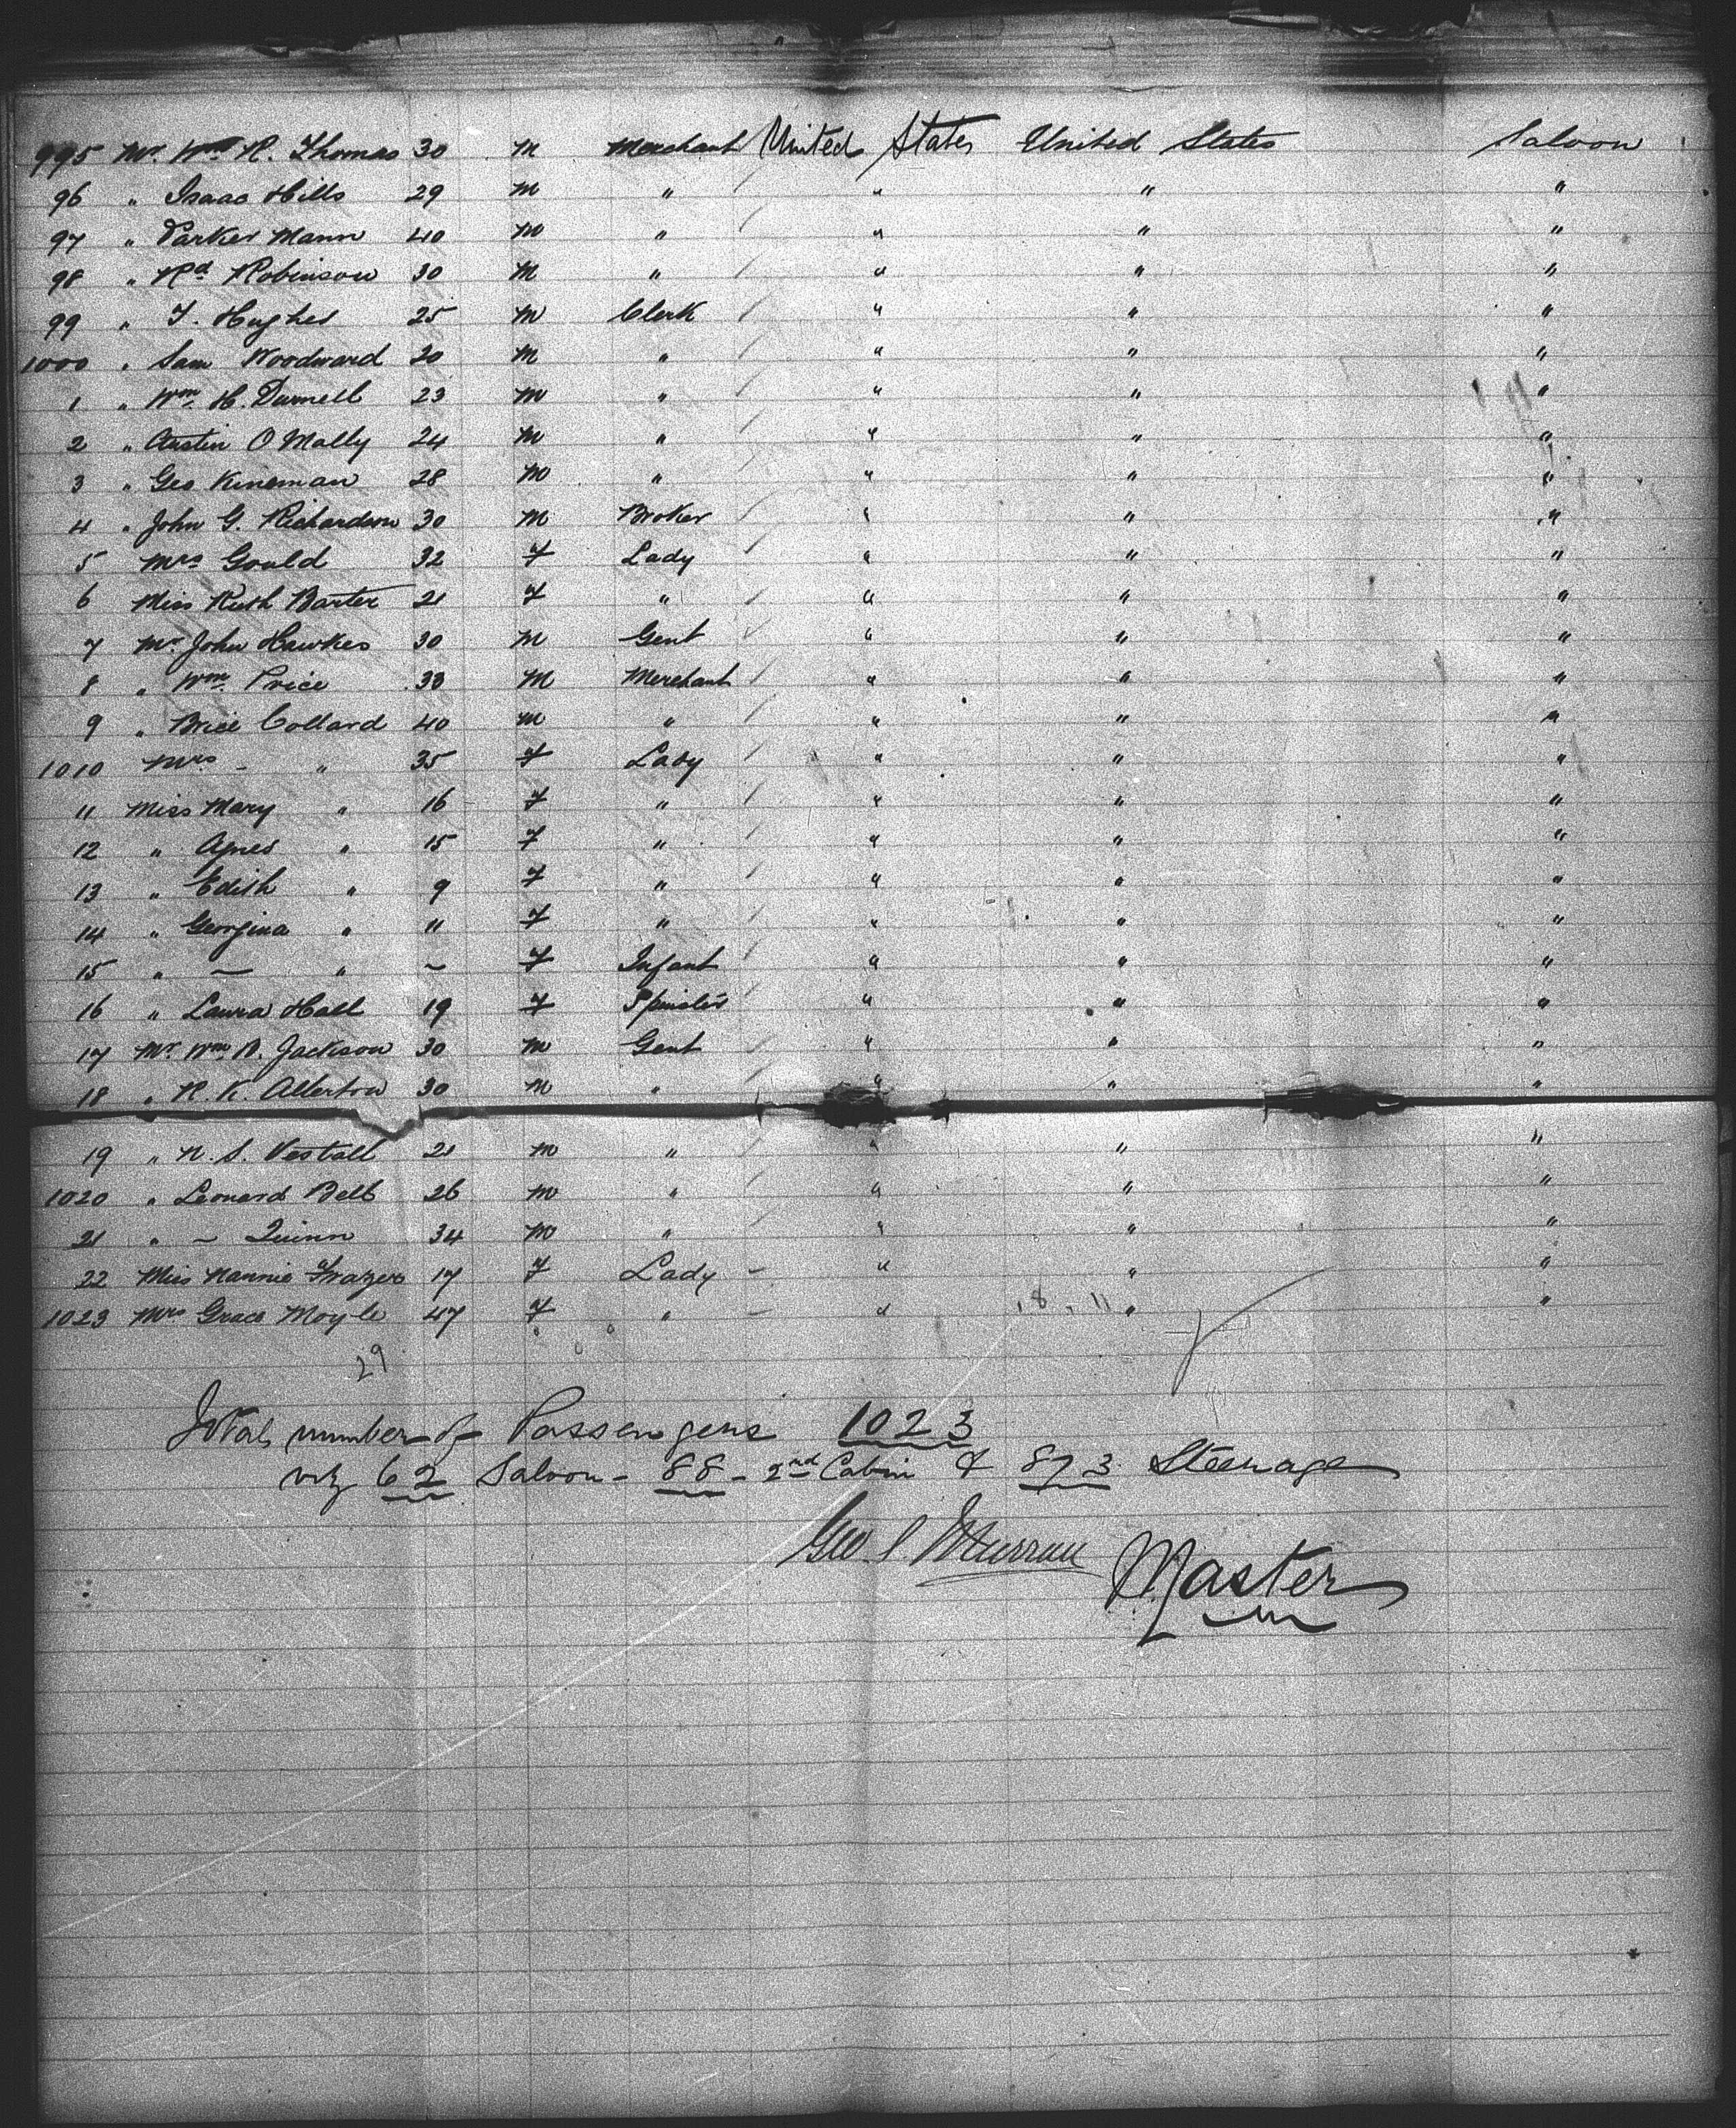 995 Mr. Wm R. Thomas 30 M Merchant United States United States Saloon
96 " Isaac Hills 29 M " " " "
97 " Parker Mann 40 M " " " "
98 " Rd Robinson 30 M " " " "
99 " T. Hughes 25 M Clerk " " "
1000 " Sam Woodward 20 M " " " "
1 " Wm H. Durnell 23 M " " " "
2 " Austin O Mally 24 M " " " "
3 " Geo Kineman 28 M " " " "
4 " John G. Richardson 30 M Broker " " "
5 Mrs Gould 32 F Lady " " "
6 Miss Ruth Barter 21 F " " " "
7 Mr John Hawkes 30 M Gent " " "
8 " Wm Price 33 M Merchant " " "
9 " Brice Collard 40 M " " " "
1010 Mrs - " 35 F Lady " " "
11 Miss Mary " 16 F " " " "
12 " Agnes " 15 F " " " "
13 " Edith " 9 F " " " "
14 " Georgina " 11 F " " " "
15 " — " — F Infant " " "
16 " Laura Hall 19 F Spinster " " "
17 Mr Wm B. Jackson 30 M Gent " " "
18 " R. K. Allerton 30 M " " " "
19 " N. S. Vestall 21 M " " " "
1020 " Leonard Bell 26 M " " " "
21 " — Quinn 34 M " " " "
22 Miss Nannie Frazer 17 F Lady " " "
1023 Mrs Grace Moyle 47 F " " " "
29
Total number of Passengers 1023
viz 62 Saloon - 88 - 2nd Cabin & 873 Steerage
Geo. S. Murray Master